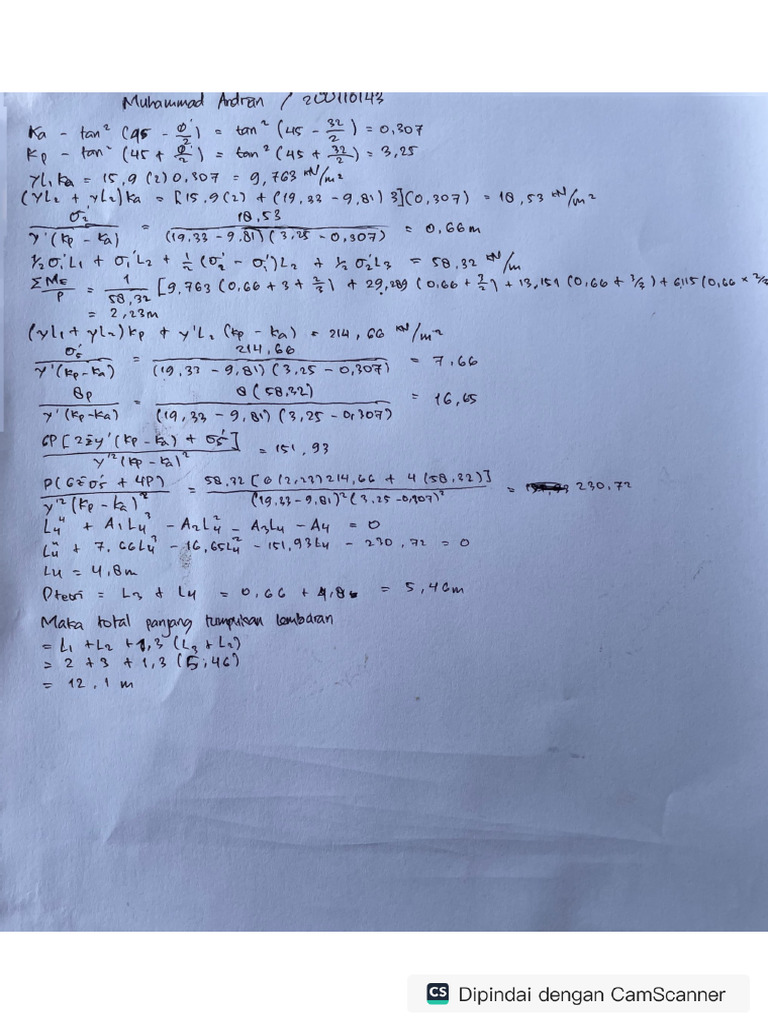 Muhammad Ardian / 200110143
Ka - tan² (45 - ø'/2) = tan² (45 - 32/2) = 0,307
Kp - tan² (45 + ø'/2) = tan² (45 + 32/2) = 3,25
γL₁ Ka = 15,9 (2) 0,307 = 9,763 kN/m²
(γL₁ + γL₂) Ka = [15,9(2) + (19,33 - 9,81) 3](0,307) = 18,53 kN/m²
σ₂' / γ'(Kp - Ka) = 18,53 / (19,33 - 9,81)(3,25 - 0,307) = 0,66m
1/2 σ₁'L₁ + σ₁'L₂ + 1/2 (σ₂' - σ₁')L₂ + 1/2 σ₂'L₃ = 58,32 kN/m
ΣME / P = 1 / 58,32 [9,763 (0,66 + 3 + 2/3) + 29,289 (0,66 + 3/2) + 13,151 (0,66 + 3/3) + 6,115 (0,66 × 2/3
= 2,23m
(γL₁ + γL₂) Kp + γ'L₃ (Kp - Ka) = 214,66 kN/m²
σ₅' / γ'(Kp - Ka) = 214,66 / (19,33 - 9,81)(3,25 - 0,307) = 7,66
8P / γ'(Kp - Ka) = 8(58,32) / (19,33 - 9,81)(3,25 - 0,307) = 16,65
6P[2z̄γ'(Kp - Ka) + σ₅'] / γ'²(Kp - Ka)² = 151,93
P(6z̄σ₅' + 4P) / γ'²(Kp - Ka)² = 58,32 [6 (2,23) 214,66 + 4 (58,32)] / (19,33 - 9,81)² (3,25 - 0,307)² = 230,72
L₄⁴ + A₁L₄³ - A₂L₄² - A₃L₄ - A₄ = 0
L₄⁴ + 7,66L₄³ - 16,65L₄² - 151,93L₄ - 230,72 = 0
L₄ = 4,8m
Dteori = L₃ + L₄ = 0,66 + 4,8 = 5,46m
Maka total panjang tumpukan lembaran
= L₁ + L₂ + 1,3 (L₃ + L₂)
= 2 + 3 + 1,3 (5,46)
= 12,1 m
CS Dipindai dengan CamScanner